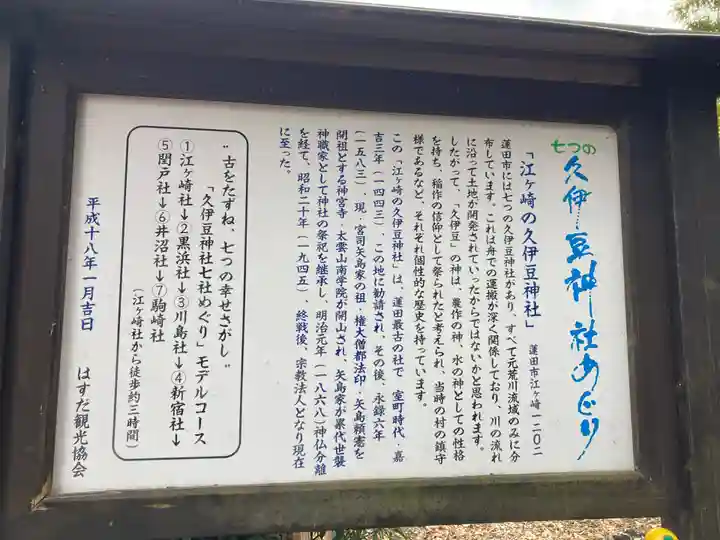 七つの
久伊豆神社めぐり
「江ヶ崎の久伊豆神社」 蓮田市江ヶ崎一二〇二
蓮田市には七つの久伊豆神社があり、すべて元荒川流域のみに分
布しています。これは舟での運搬が深く関係しており、川の流れ
に沿って土地が開発されていったからではないかと思われます。
したがって、「久伊豆」の神は、農作の神、水の神としての性格
を持ち、稲作の信仰として祭られたと考えられ、当時の村の鎮守
様であるなど、それぞれ個性的な歴史を持っています。
この「江ヶ崎の久伊豆神社」は、蓮田最古の社で 室町時代・嘉
吉三年(一四四三)・この地に勧請され、その後、永録六年
(一五八三)・現・宮司矢島家の祖・権大僧都法印・矢島頼憲を
開祖とする神宮寺・太雲山南学院が開山され、矢島家が累代世襲
神職家として神社の祭祀を継承し、明治元年(一八六八)神仏分離
を経て、昭和二十年(一九四五)、終戦後、宗教法人となり現在
に至った。
"古をたずね、七つの幸せさがし"
「久伊豆神社七社めぐり」モデルコース
①江ヶ崎社→②黒浜社→③川島社→④新宿社→
⑤閏戸社→⑥井沼社→⑦駒崎社
(江ヶ崎社から徒歩約三時間)
平成十八年一月吉日
はすだ観光協会